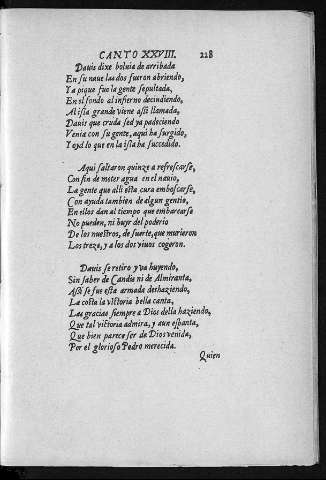 CANTO XXVIII. 228
Dauis dixe boluia de arribada
En su naue las dos fueron abriendo,
Y a pique fue la gente sepultada,
En el fondo al infierno decindiendo,
A lisla grande viene asi llamada,
Dauis que cruda sed ya padeciendo
Venia con su gente, aqui ha surgido,
Y oyd lo que en la isla ha succedido.
Aqui saltaron quinze a refrescarse,
Con fin de meter agua en el nauio,
La gente que alli esta cura emboscarse,
Con ayuda tambien de algun gentio,
En ellos dan al tiempo que embarcarse
No pueden, ni huyr del poderio
De los nuestros, de suerte, que murieron
Los treze, y a los dos viuos cogeron.
Dauis se retiro y va huyendo,
Sin saber de Candie ni de Almiranta,
Assi se fue esta armada deshaziendo,
La costa la victoria bella canta,
Las gracias siempre a Dios della haziendo,
Que tal victoria admira, y aun espanta,
Que bien parece ser de Dios venida,
Por el glorioso Pedro merecida.
Quien